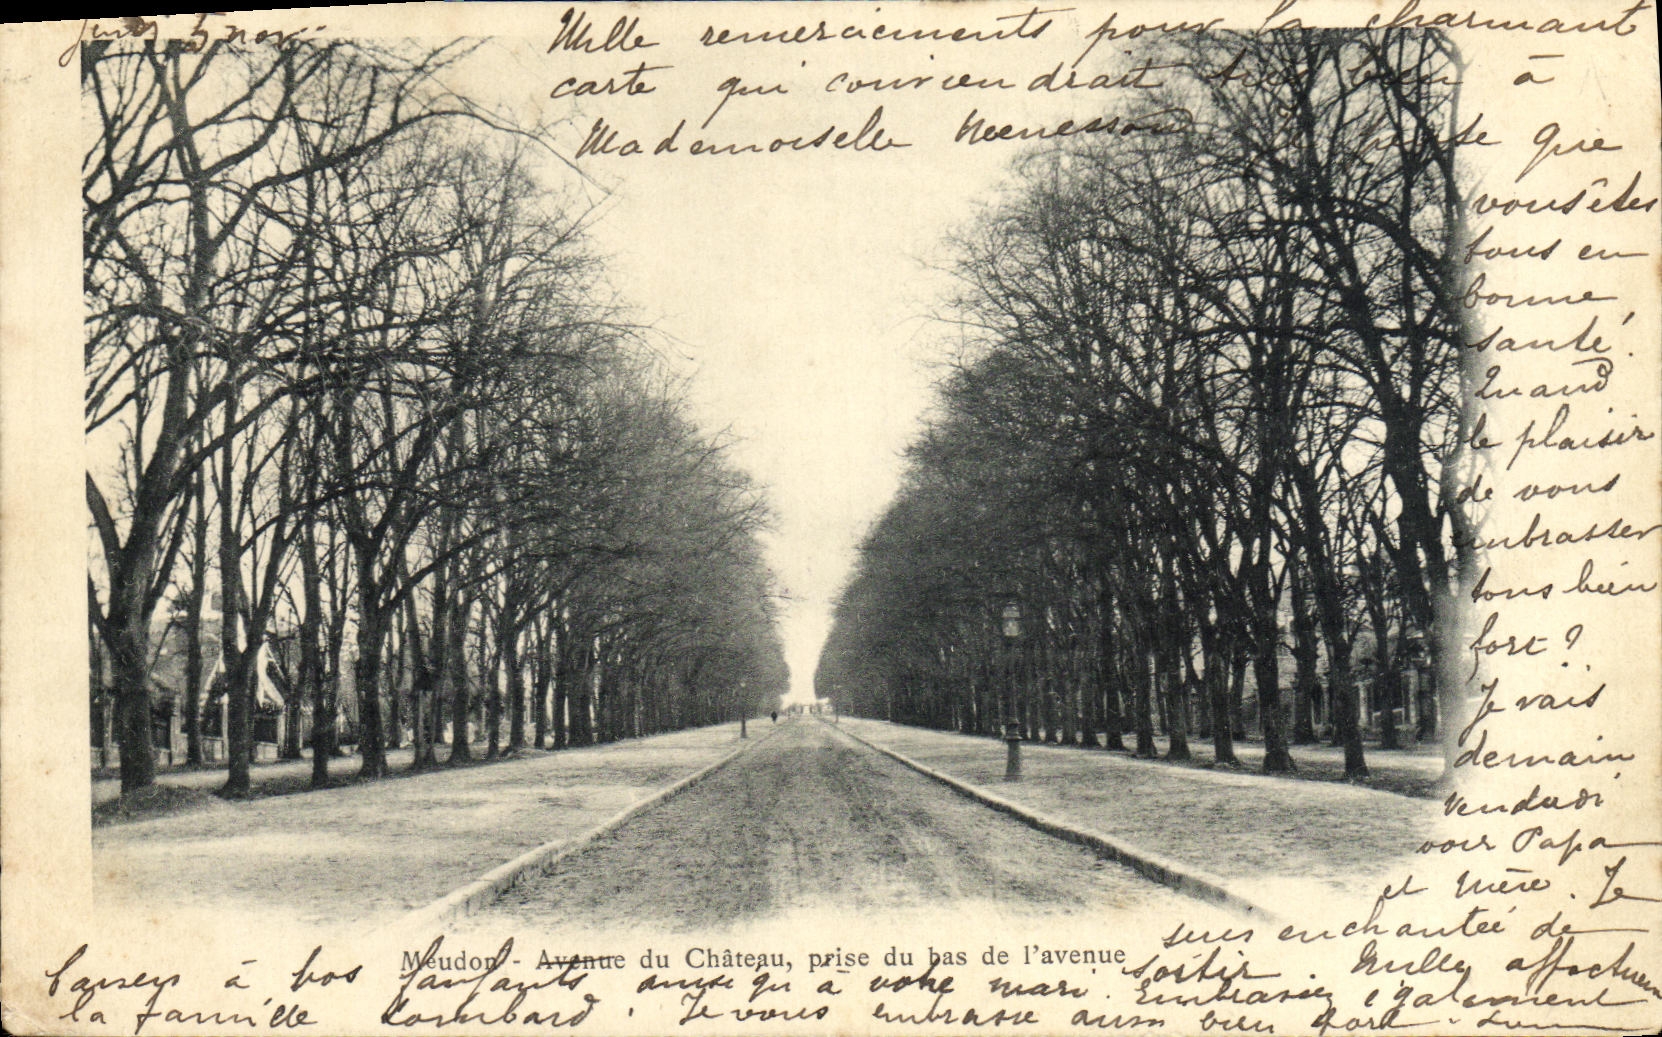 Jeudi 5 nov.
Mille remerciements pour la charmante
carte qui conviendrait très bien à
Mademoiselle Je pense que
vous êtes
tous en
bonne
santé.
Quand
le plaisir
de vous
embrasser
tous bien
fort ?
Je vais
demain
Vendredi
voir Papa
et Mère. Je
suis enchantée de
sortir. Mille affectueux
Meudon - Avenue du Château, prise du bas de l'avenue
baisers à vos enfants ainsi qu'à votre mari. Embrassez également
la famille Lombard. Je vous embrasse aussi bien fort.